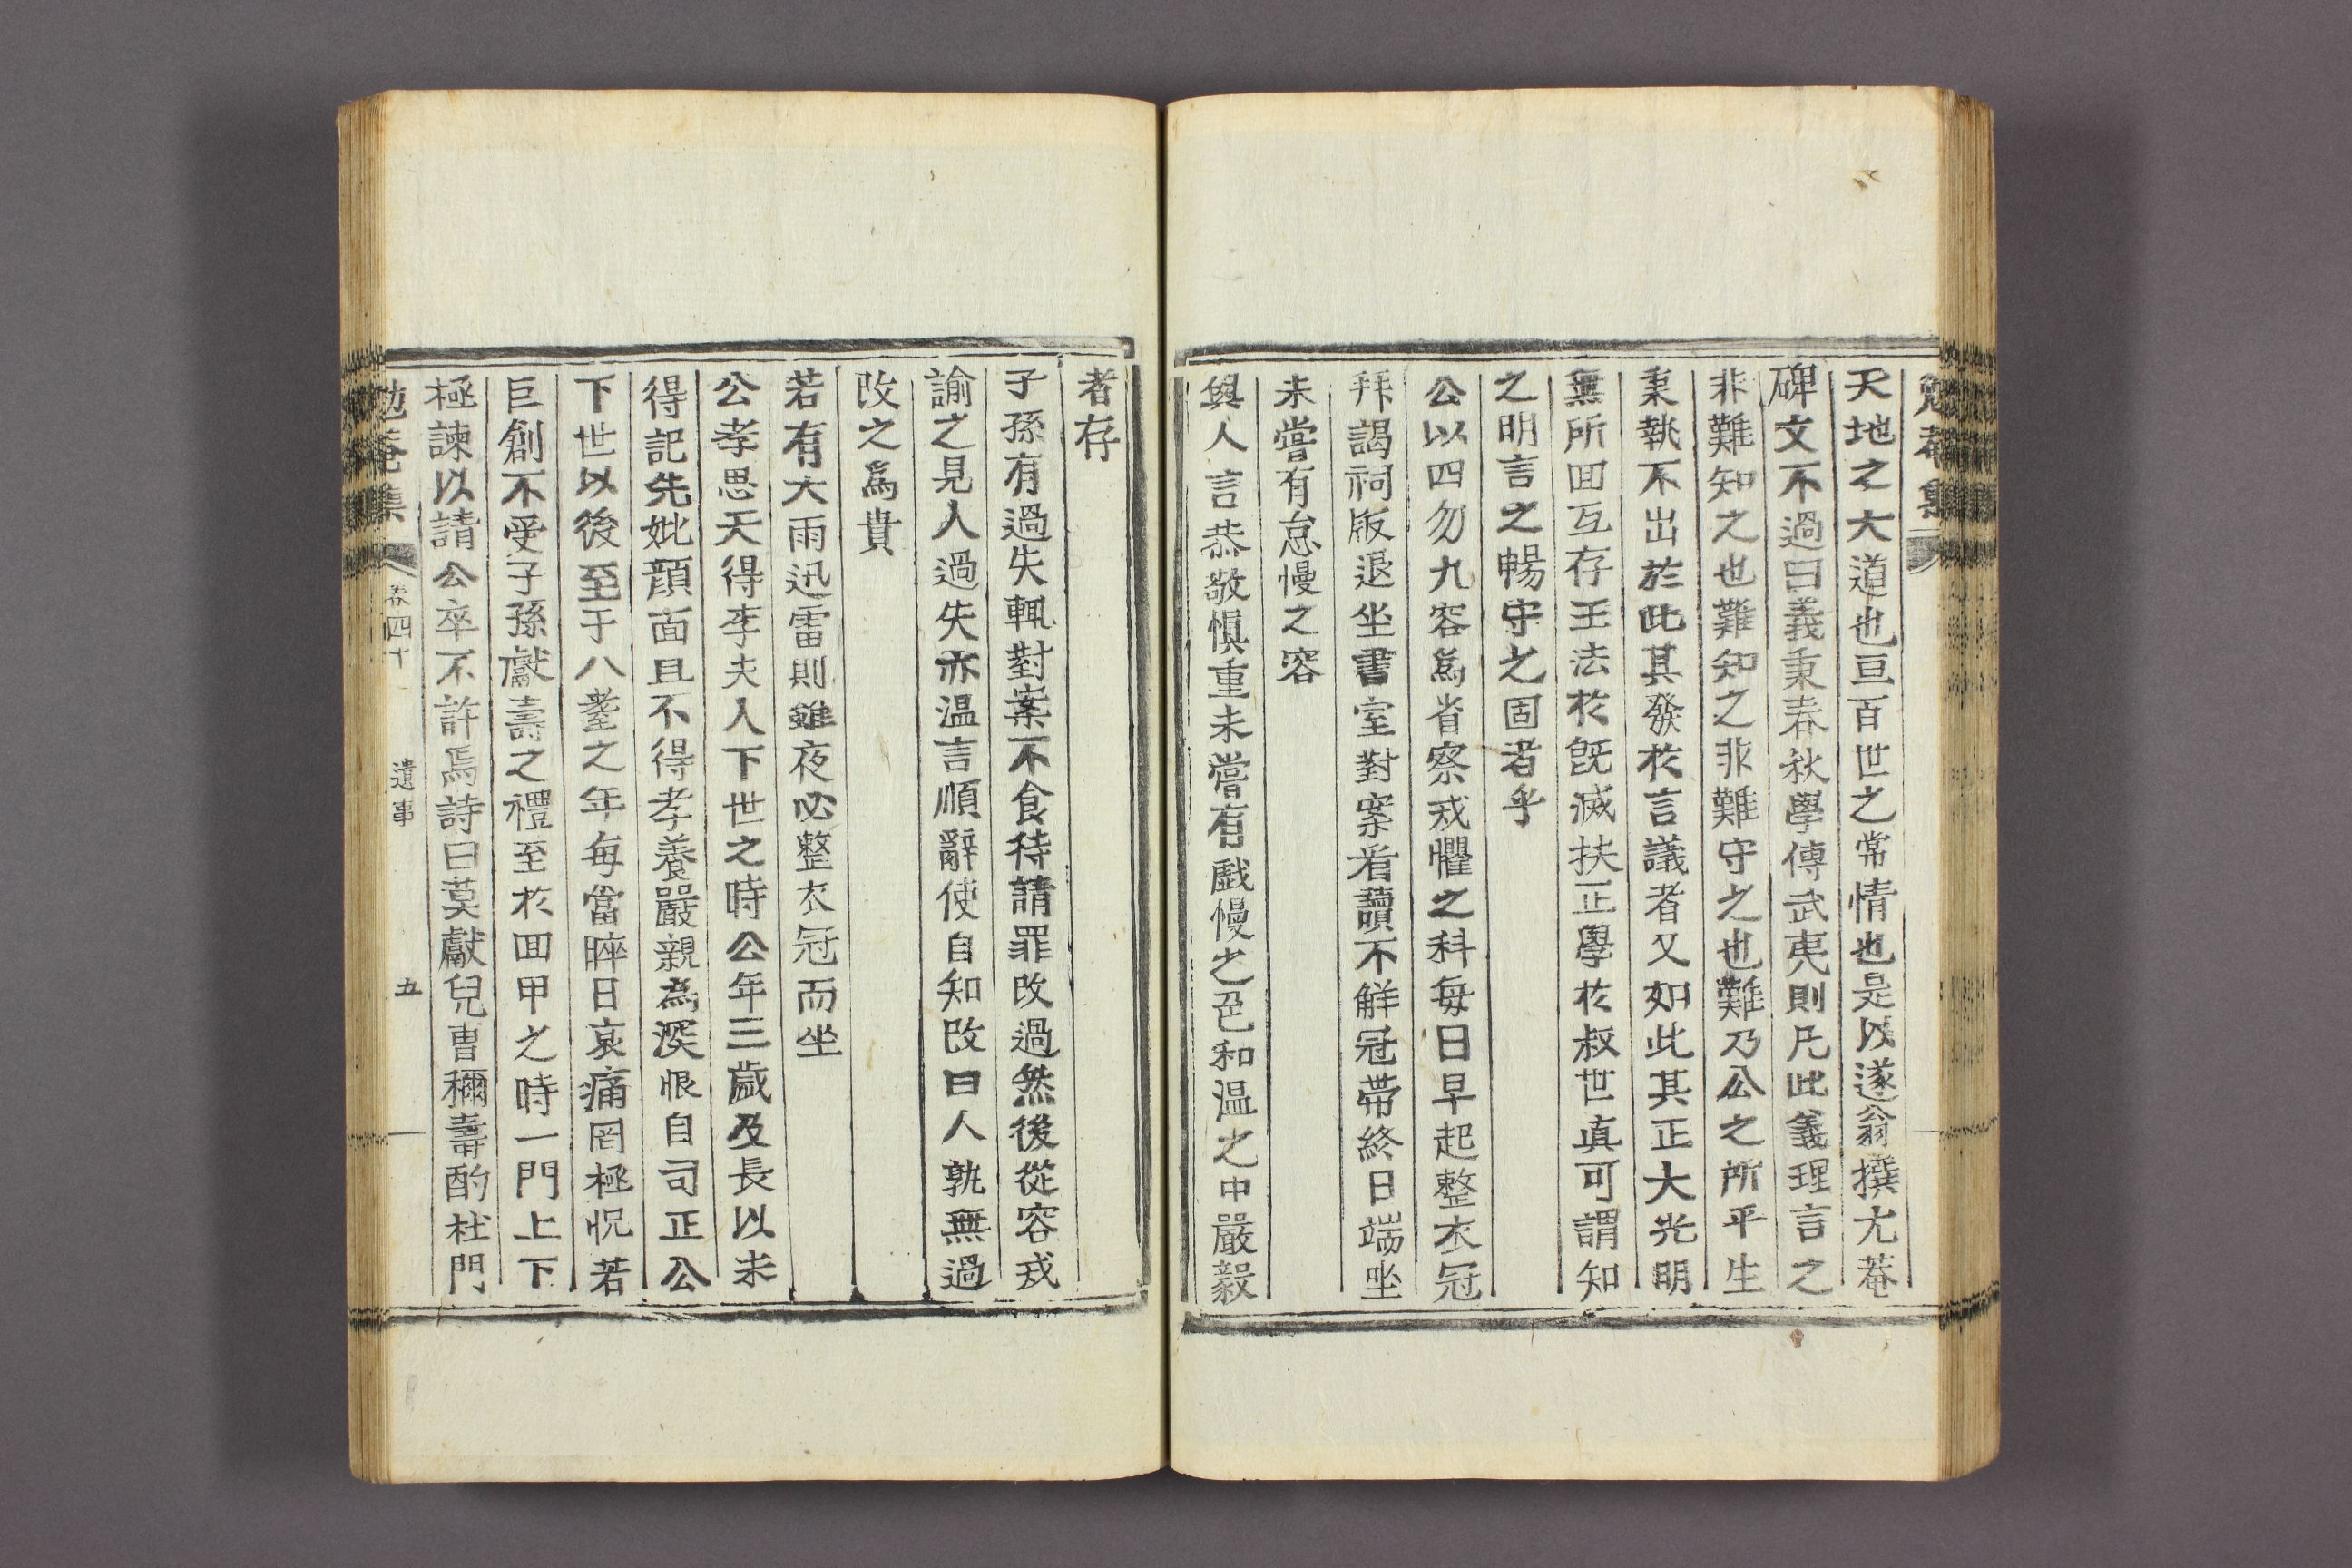 勉菴集
天地之大道也亘百世之常情也是以遂翁撰尤菴
碑文不過曰義秉春秋學傳武夷則凡此義理言之
非難知之也難知之非難守之也難乃公之所平生
秉執不出於此其發於言議者又如此其正大光明
無所囬互存王法於旣滅扶正學於叔世真可謂知
之明言之暢守之固者乎
公以四勿九容爲省察戒懼之科每日早起整衣冠
拜謁祠版退坐書室對案看讀不觧冠帶終日端坐
未嘗有怠慢之容
與人言恭敬愼重未嘗有戱慢之色和温之中嚴毅
者存
子孫有過失輒對案不食待請罪改過然後從容戒
諭之見人過失亦温言順辭使自知改曰人孰無過
改之爲貴
若有大雨迅雷則雖夜必整衣冠而坐
公孝思天得李夫人下世之時公年三歲及長以未
得記先妣顔面且不得孝養嚴親為深恨自司正公
下世以後至于八耋之年每當晬日哀痛罔極怳若
巨創不受子孫獻壽之禮至於囬甲之時一門上下
極諫以請公卒不許焉詩曰莫獻兒曹稱壽酌杜門
勉菴集 卷四十 遺事 五